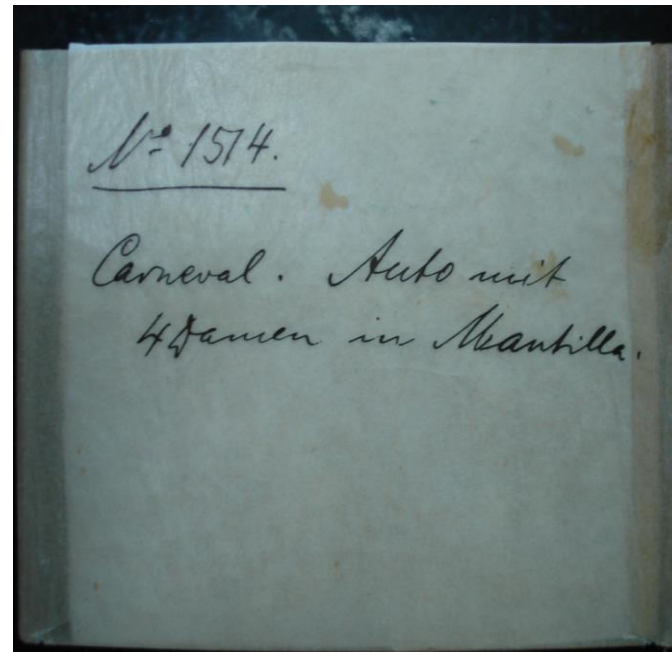 Nº 1514.
Carneval. Auto mit
4 Damen in Mantilla.